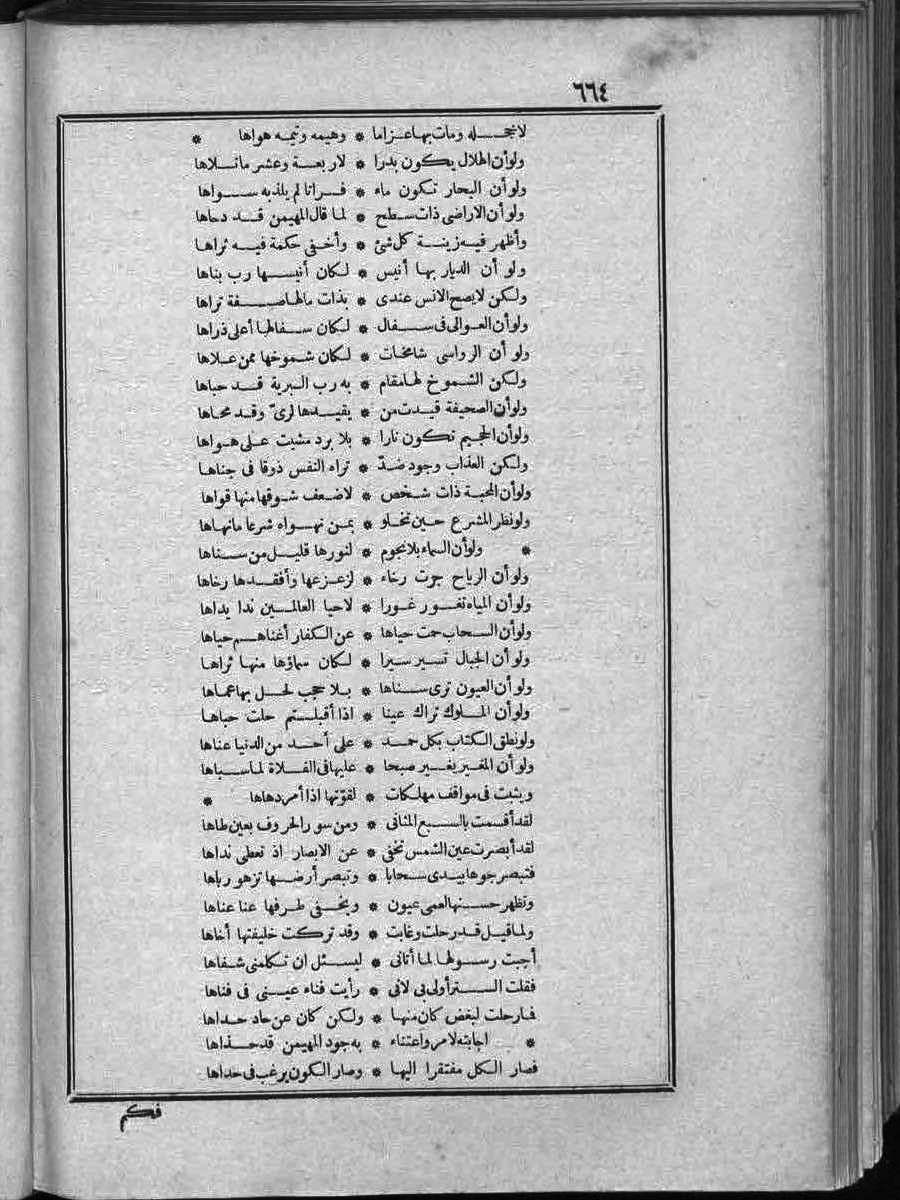 ٦٦٤
لانحـله ومات بها غراما * وهيمه وتيمه هواها *
ولو أن الهلال يكون بدرا * لاربعة وعشر ما تلاها
ولو أن البحار تكون ماء * فراتا لم يلذ به سواها
ولو أن الاراضى ذات سطح * لما قال المهيمن قد دحاها
وأظهر فيه زينة كل شئ * وأخفى حكمة فيه ثراها
ولو أن الديار بها أنيس * لكان أنيسها رب بناها
ولكن لا يصح الانس عندى * بذات مالها صفة تراها
ولو أن العوالى فى سفال * لكان سفالها أعلى ذراها
ولو أن الرواسى شامخات * لكان شموخها ممن علاها
ولكن الشموخ لها مقام * به رب البرية قد حباها
ولو أن الصحيفة قيدت من * يقيدها لرىّ وقد محاها
ولو أن الجحيم تكون نارا * بلا برد مشيت على هواها
ولكن العذاب وجود ضدّ * تراه النفس ذوقا فى جناها
ولو أن المحبة ذات شخص * لاضعف شوقها منها قواها
ولو نظر المشرع حين تخلو * بمن تهواه شرعا ما نهاها
* ولو أن السماء بلا نجوم * لنورها قليل من سناها
ولو أن الرياح جرت رخاء * لزعزعها وأفقدها رخاها
ولو أن المياه تغور غورا * لاحيا العالمين ندا يداها
ولو أن السحاب حمت حياها * عن الكفار أغناهم حياها
ولو أن الجبال تسير سيرا * لكان سماؤها منها ثراها
ولو أن العيون ترى سناها * بلا حجب لحل بها عماها
ولو أن الملوك تراك عينا * اذا أقبلتم حلت حباها
ولو نطق الكتاب بكل حمد * على أحد من الدنيا عناها
ولو أن المغير يغير صبحا * عليها فى الفلاة لما سباها
ويثبت فى مواقف مهلكات * لقوّتها اذا أمر دهاها *
لقد أقسمت بالسبع المثانى * ومن سور الحروف بعين طاها
لقد أبصرت عين الشمس تخفى * عن الابصار اذ تعطى نداها
فتبصر جوها يبدى سحابا * وتبصر أرضها تزهو رباها
وتظهر حسنها لعمى عيون * ويخفى طرفها عنا عناها
ولما قيل قد رحلت وغابت * وقد تركت خليفتها أخاها
أجبت رسولها لما أتانى * ليسئل ان تكلمنى شفاها
فقلت الستر أولى بى لانى * رأيت فناء عينى فى فناها
فما رحلت لبغض كان منها * ولكن كان عن حاد حداها
* اجابته لامر واعتناء * به جود المهيمن قد حذاها
فصار الكل مفتقرا اليها * وصار الكون يرغب فى حداها
فكم